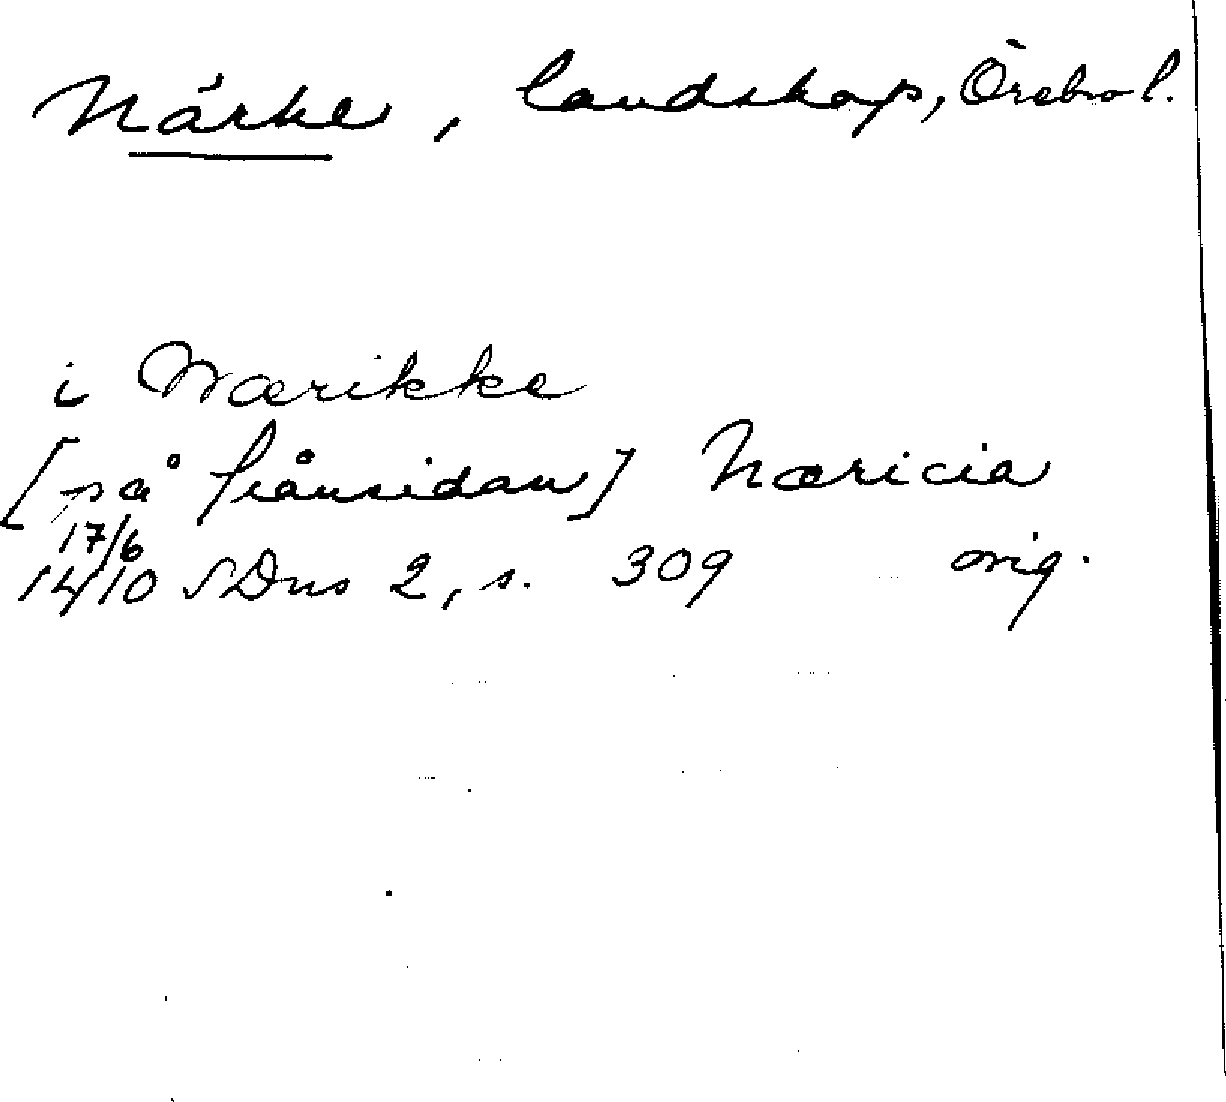 Närke, landskap, Örebro l.
i Nærikke
[på frånsidan] Næricia
17/6
1410 SDns 2, s. 309 orig.